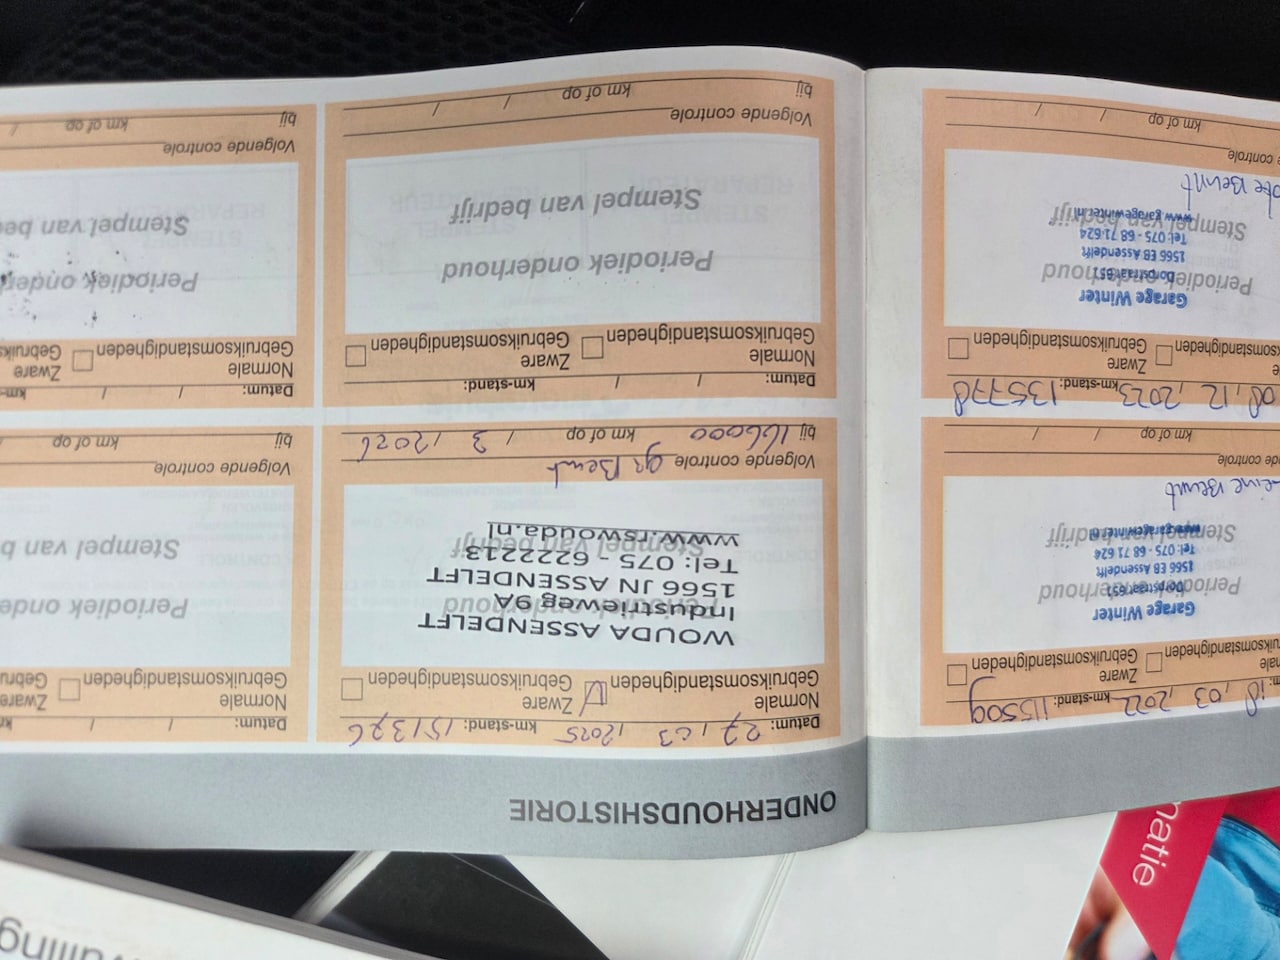 ONDERHOUDSHISTORIE
18, 03, 2022 km-stand: 115509
Gebruiksomstandigheden
Zware
Gebruiksomstandigheden
Garage Winter
Dorpstraat 651
1566 EB Assendelft
Tel: 075 - 68 71 624
www.garagewinter.nl
Periodiek onderhoud
Stempel van bedrijf
Beurt
km of op / /
08, 12, 2023 km-stand: 135778
Zware
Gebruiksomstandigheden
Garage Winter
Dorpstraat 651
1566 EB Assendelft
Tel: 075 - 68 71 624
www.garagewinter.nl
Periodiek onderhoud
Stempel van bedrijf
Beurt
controle
km of op / /
Datum: 27 / 03 / 2025 km-stand: 151376
Normale
Gebruiksomstandigheden
Zware
Gebruiksomstandigheden
WOUDA ASSENDELFT
Industrieweg 9A
1566 JN ASSENDELFT
Tel: 075 - 6222213
www.rswouda.nl
Periodiek onderhoud
Stempel van bedrijf
Volgende controle gr Beurt
bij 166000 km of op / 3 / 2026
Datum: / / km-stand:
Normale
Gebruiksomstandigheden
Zware
Gebruiksomstandigheden
Periodiek onderhoud
Stempel van bedrijf
Volgende controle
bij km of op / /
Datum: / /
Normale
Gebruiksomstandigheden
Zware
Periodiek
Stempel van
Volgende controle
bij km of op /
Datum: / /
Normale
Gebruiksomstandigheden
Zware
Periodiek
Stempel van
Volgende controle
bij km of op /
matie